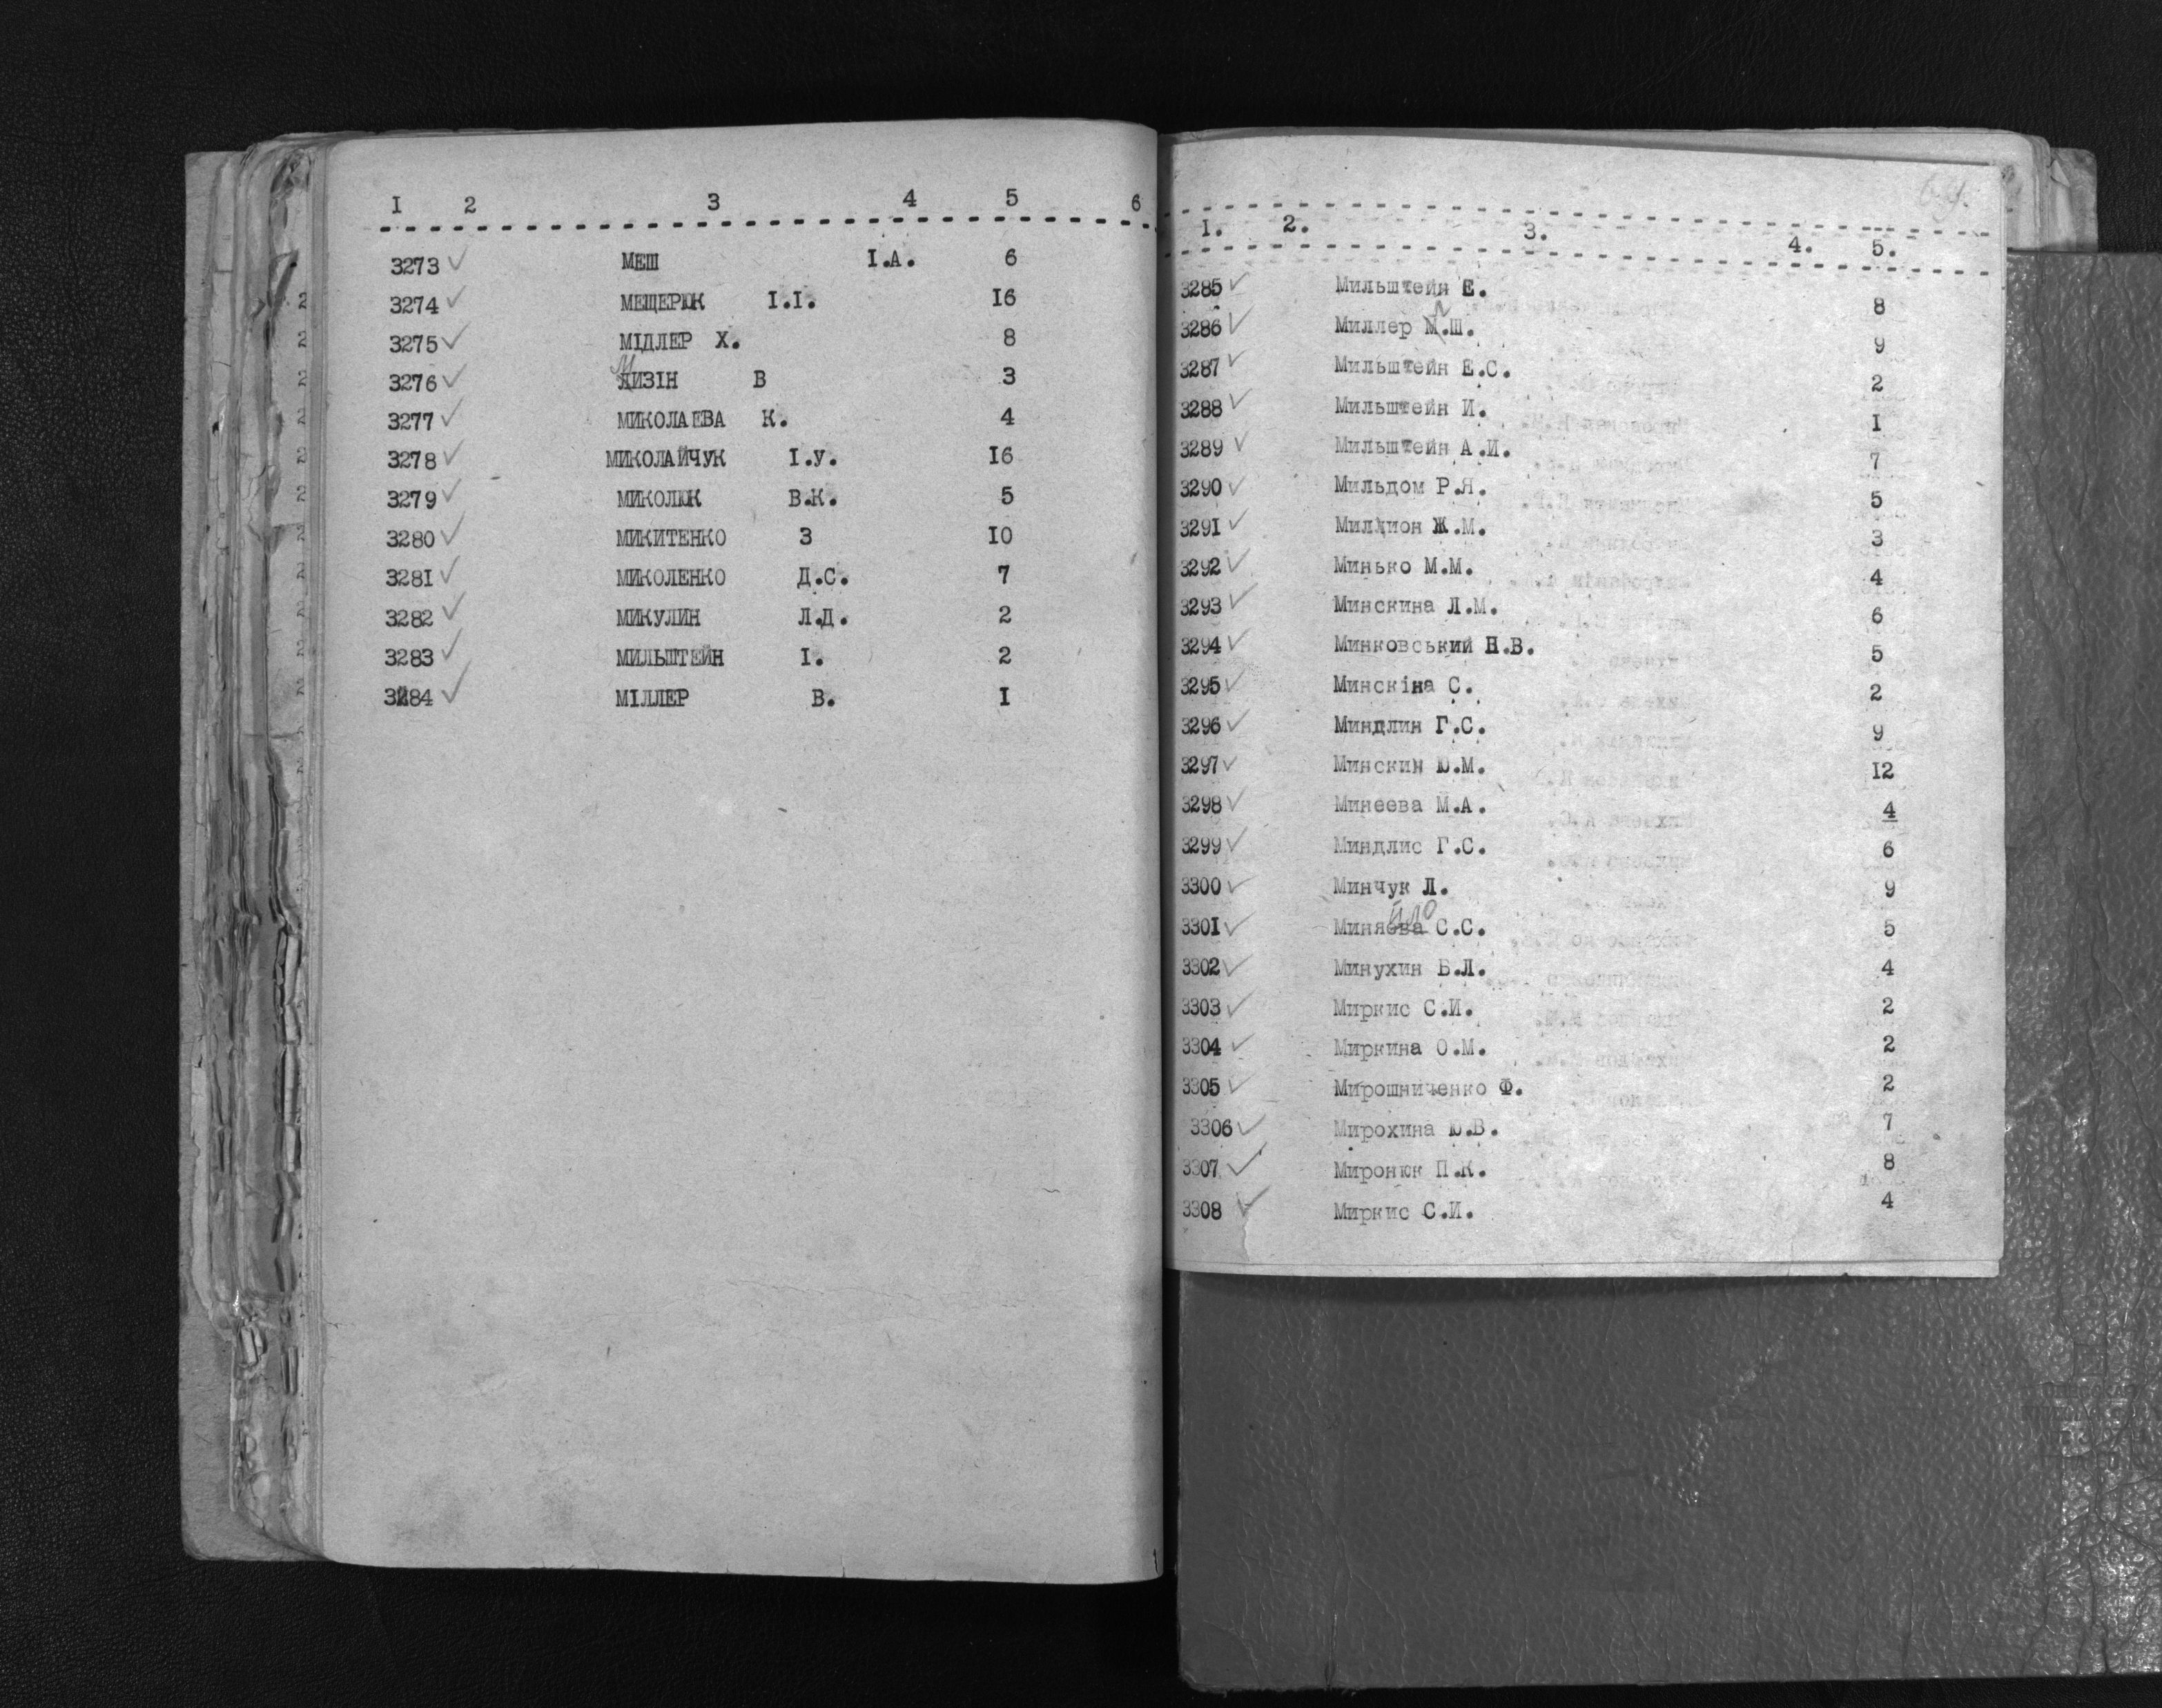 I 2 3 4 5 6
3273 МЕШ I.А. 6
3274 МЕЩЕРЮК I.I. I6
3275 МIДЛЕР Х. 8
3276 МИЗIН В 3
3277 МИКОЛАЕВА К. 4
3278 МИКОЛАЙЧУК I.У. I6
3279 МИКОЛЮК В.К. 5
3280 МИКИТЕНКО З IO
328I МИКОЛЕНКО Д.С. 7
3282 МИКУЛИН Л.Д. 2
3283 МИЛЬШТЕЙН I. 2
3284 МIЛЛЕР В. I
I. 2. 3. 4. 5.
3285 Мильштейн Е. 8
3286 Миллер И.Ш. 9
3287 Мильштейн Е.С. 2
3288 Мильштейн И. I
3289 Мильштейн А.И. 7
3290 Мильдом Р.Я. 5
329I Милион Ж.М. 3
3292 Минько М.М. 4
3293 Минскина Л.М. 6
3294 Минковський Н.В. 5
3295 Минскiна С. 2
3296 Миндлин Г.С. 9
3297 Минскин Ю.М. I2
3298 Минеева М.А. 4
3299 Миндлис Г.С. 6
3300 Минчук Л. 9
йло
330I Миняева С.С. 5
3302 Минухин Б.Л. 4
3303 Миркис С.И. 2
3304 Миркина О.М. 2
3305 Мирошниченко Ф. 2
3306 Мирохина Ю.В. 7
3307 Миронюк П.К. 8
3308 Миркис С.И. 4